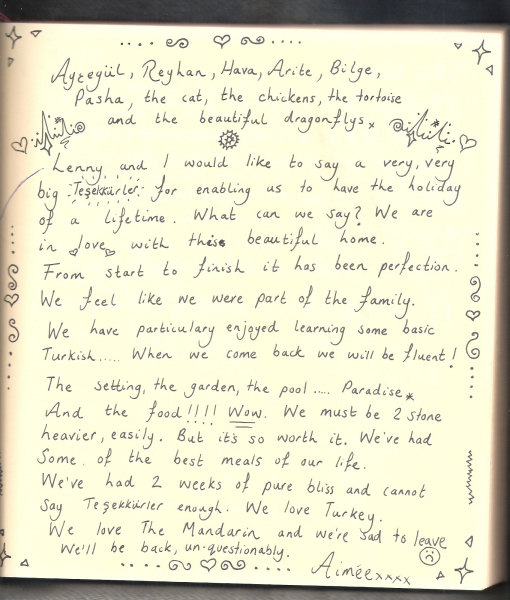 Ayşegül, Reyhan, Hava, Arite, Bilge,
Pasha, the cat, the chickens, the tortoise
and the beautiful dragonflys x
Lenny and I would like to say a very, very
big Teşekkürler for enabling us to have the holiday
of a lifetime. What can we say? We are
in love with this beautiful home.
From start to finish it has been perfection.
We feel like we were part of the family.
We have particulary enjoyed learning some basic
Turkish..... When we come back we will be fluent!
The setting, the garden, the pool ..... Paradise
And the food!!!! Wow. We must be 2 stone
heavier, easily. But it's so worth it. We've had
Some of the best meals of our life.
We've had 2 weeks of pure bliss and cannot
Say Teşekkürler enough. We love Turkey.
We love The Mandarin and we're sad to leave
We'll be back, un-questionably.
Aimée xxxx